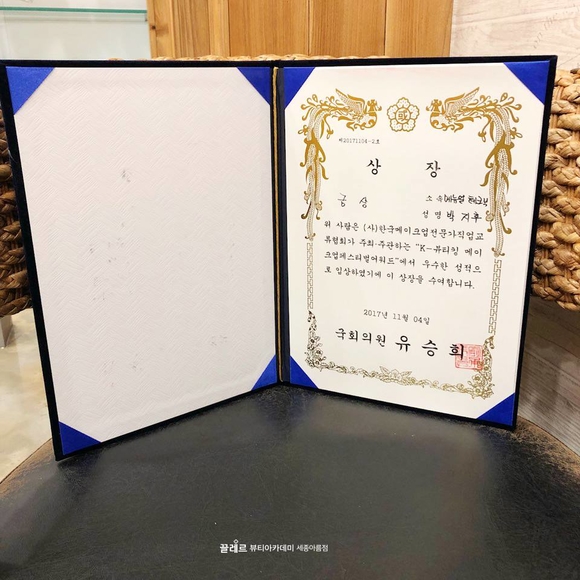 제20171104-2호
상 장
금 상
소 속
성 명 박 지우
위 사람은 (사)한국메이크업전문가직업교
류협회가 주최·주관하는 "K-뷰티킹 메이
크업페스티벌어워드"에서 우수한 성적으
로 입상하였기에 이 상장을 수여합니다.
2017년 11월 04일
국회의원 유 승 희
끌레르 뷰티아카데미 세종아름점